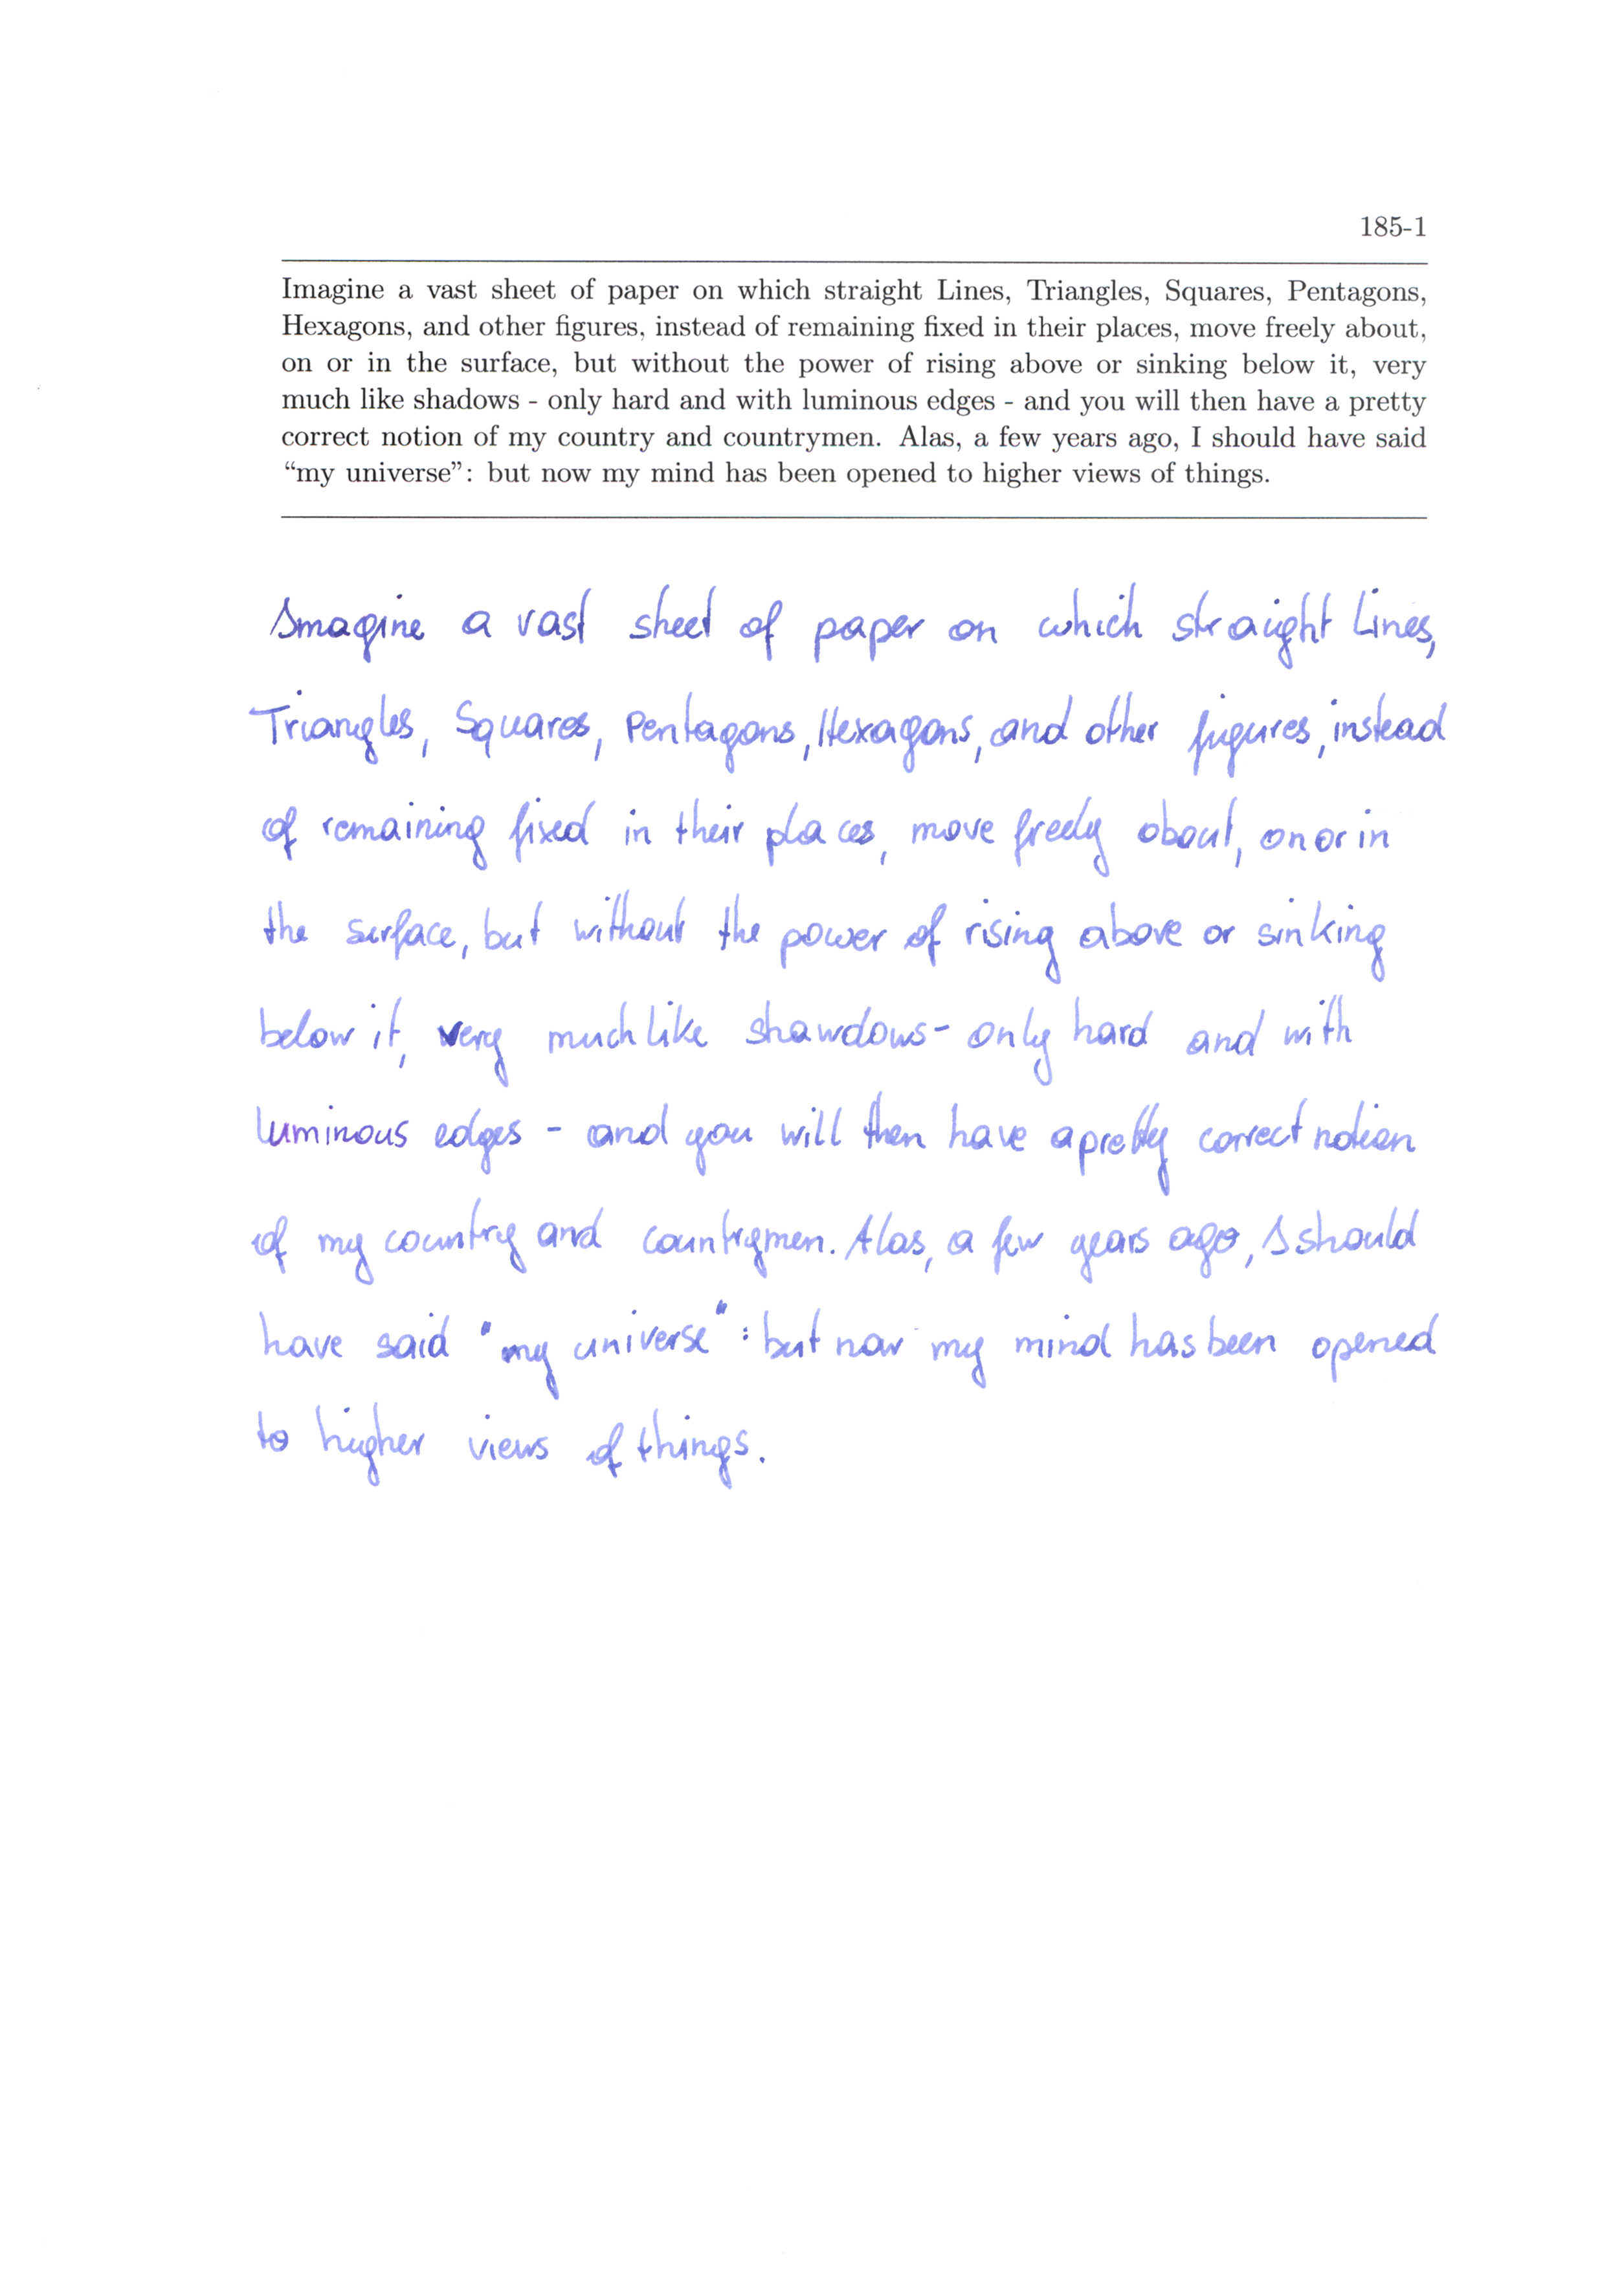 185-1
Imagine a vast sheet of paper on which straight Lines, Triangles, Squares, Pentagons,
Hexagons, and other figures, instead of remaining fixed in their places, move freely about,
on or in the surface, but without the power of rising above or sinking below it, very
much like shadows - only hard and with luminous edges - and you will then have a pretty
correct notion of my country and countrymen. Alas, a few years ago, I should have said
“my universe”: but now my mind has been opened to higher views of things.
Imagine a vast sheet of paper on which straight Lines,
Triangles, Squares, Pentagons, Hexagons, and other figures, instead
of remaining fixed in their places, move freely about, on or in
the surface, but without the power of rising above or sinking
below it, very much like shawdows - only hard and with
luminous edges - and you will then have a pretty correct notion
of my country and countrymen. Alas, a few years ago, I should
have said "my universe": but now my mind has been opened
to higher views of things.